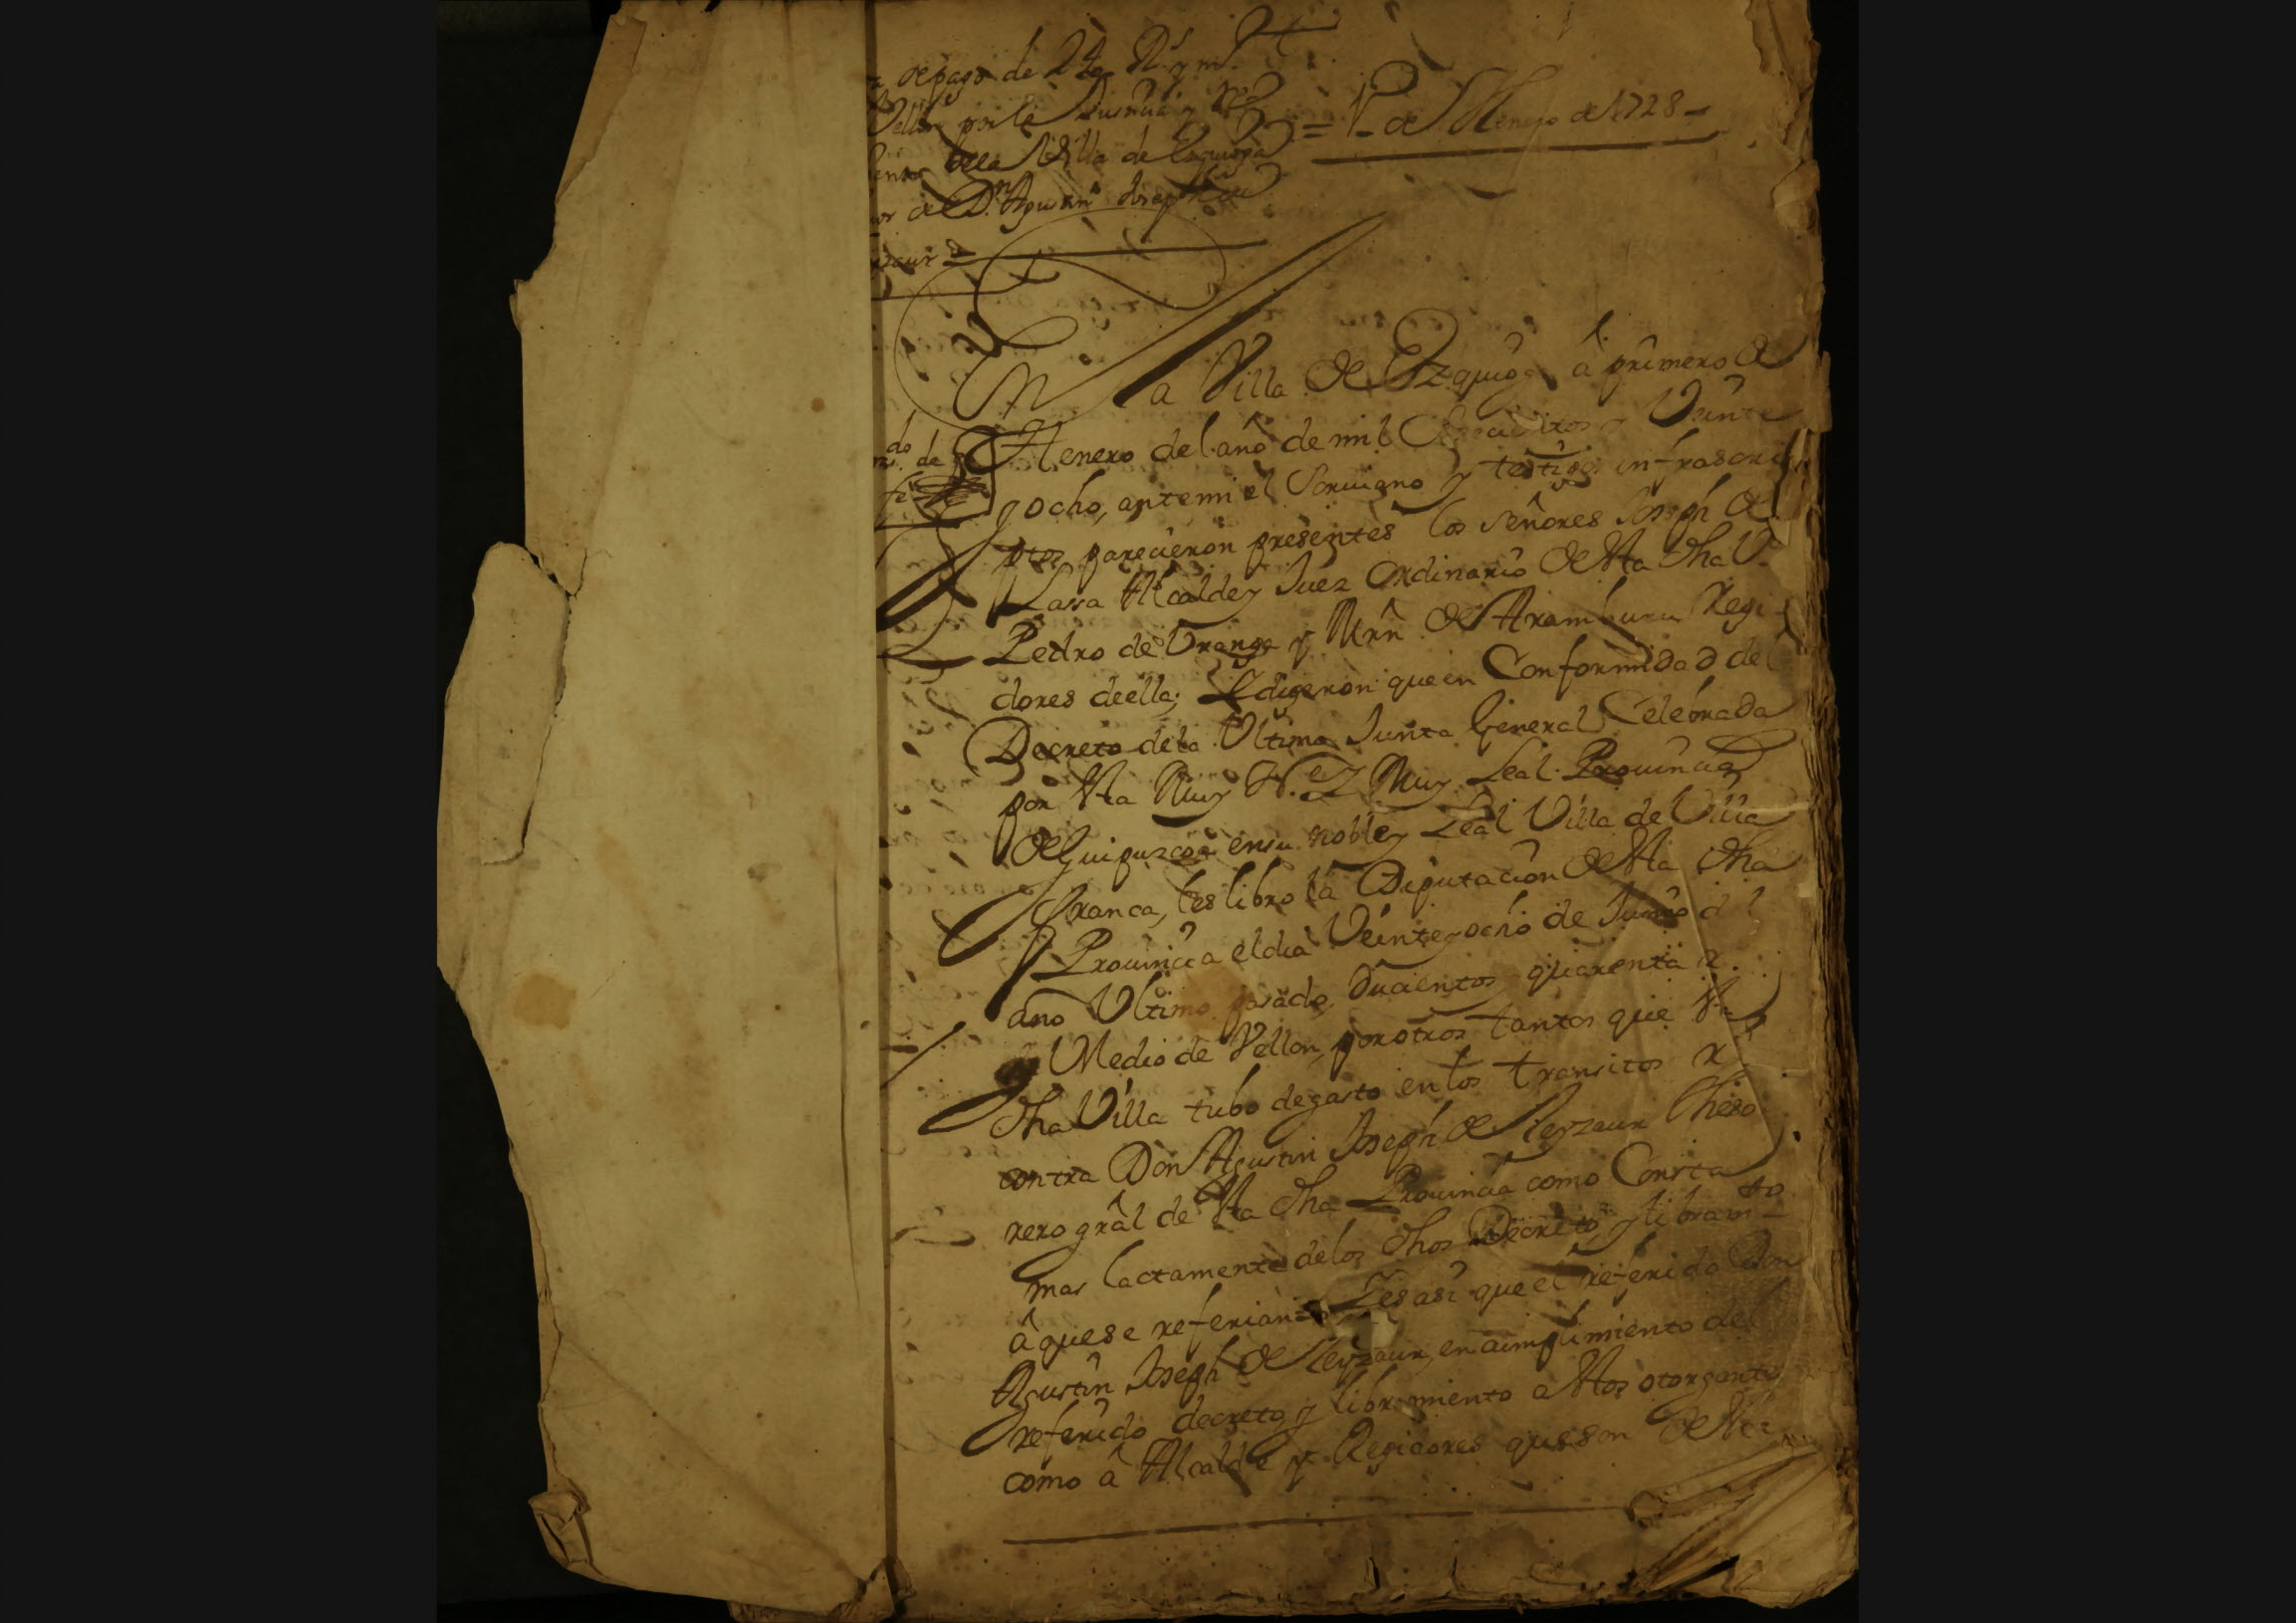 de pago de 240 Rs y m.º
Vellon por la Justicia y Regi
de la Villa de Ezquioga = 1.º de Henero de 1728 –
de Dn Agustin Joseph de
En la Villa de Ezquioga â primero de
Henero del año de mil Setecientos y Veinte
y ocho, ante mi el Scriuano y testigos infrascri
ptos parecieron presentes los señores Joseph de
Lassa Alcalde y Juez Ordinario de esta dha V.ª
Pedro de Vranga y Mrn de Aramburu Regi
dores de ella; y digeron que en Conformidad del
Decreto de la Vltima Junta General Celebrada
por esta Muy N. Y Muy Leal Prouincia
de Guipuzcoa en su noble y Leal Villa de Villa
franca, les libro la Diputacion de esta dha
Prouincia el dia Veinte y ocho de Junio del
año Vltimo pasado, Ducientos y quarenta r.
y Medio de Vellon, por otros tantos que esta
dha Villa tubo de gasto en los transitos
contra Don Agustin Joseph de Leyzaur Theso
rero grâl de esta dha Prouincia como Consta
mas lactamente de los dhos Decreto y libramto
â que se referian = Y es asi que el referido Don
Agustin Joseph de Leyzaur, en cumplimiento del
referido decreto y libramiento a estos otorgantes
como â Alcalde y Regidores que son de esta